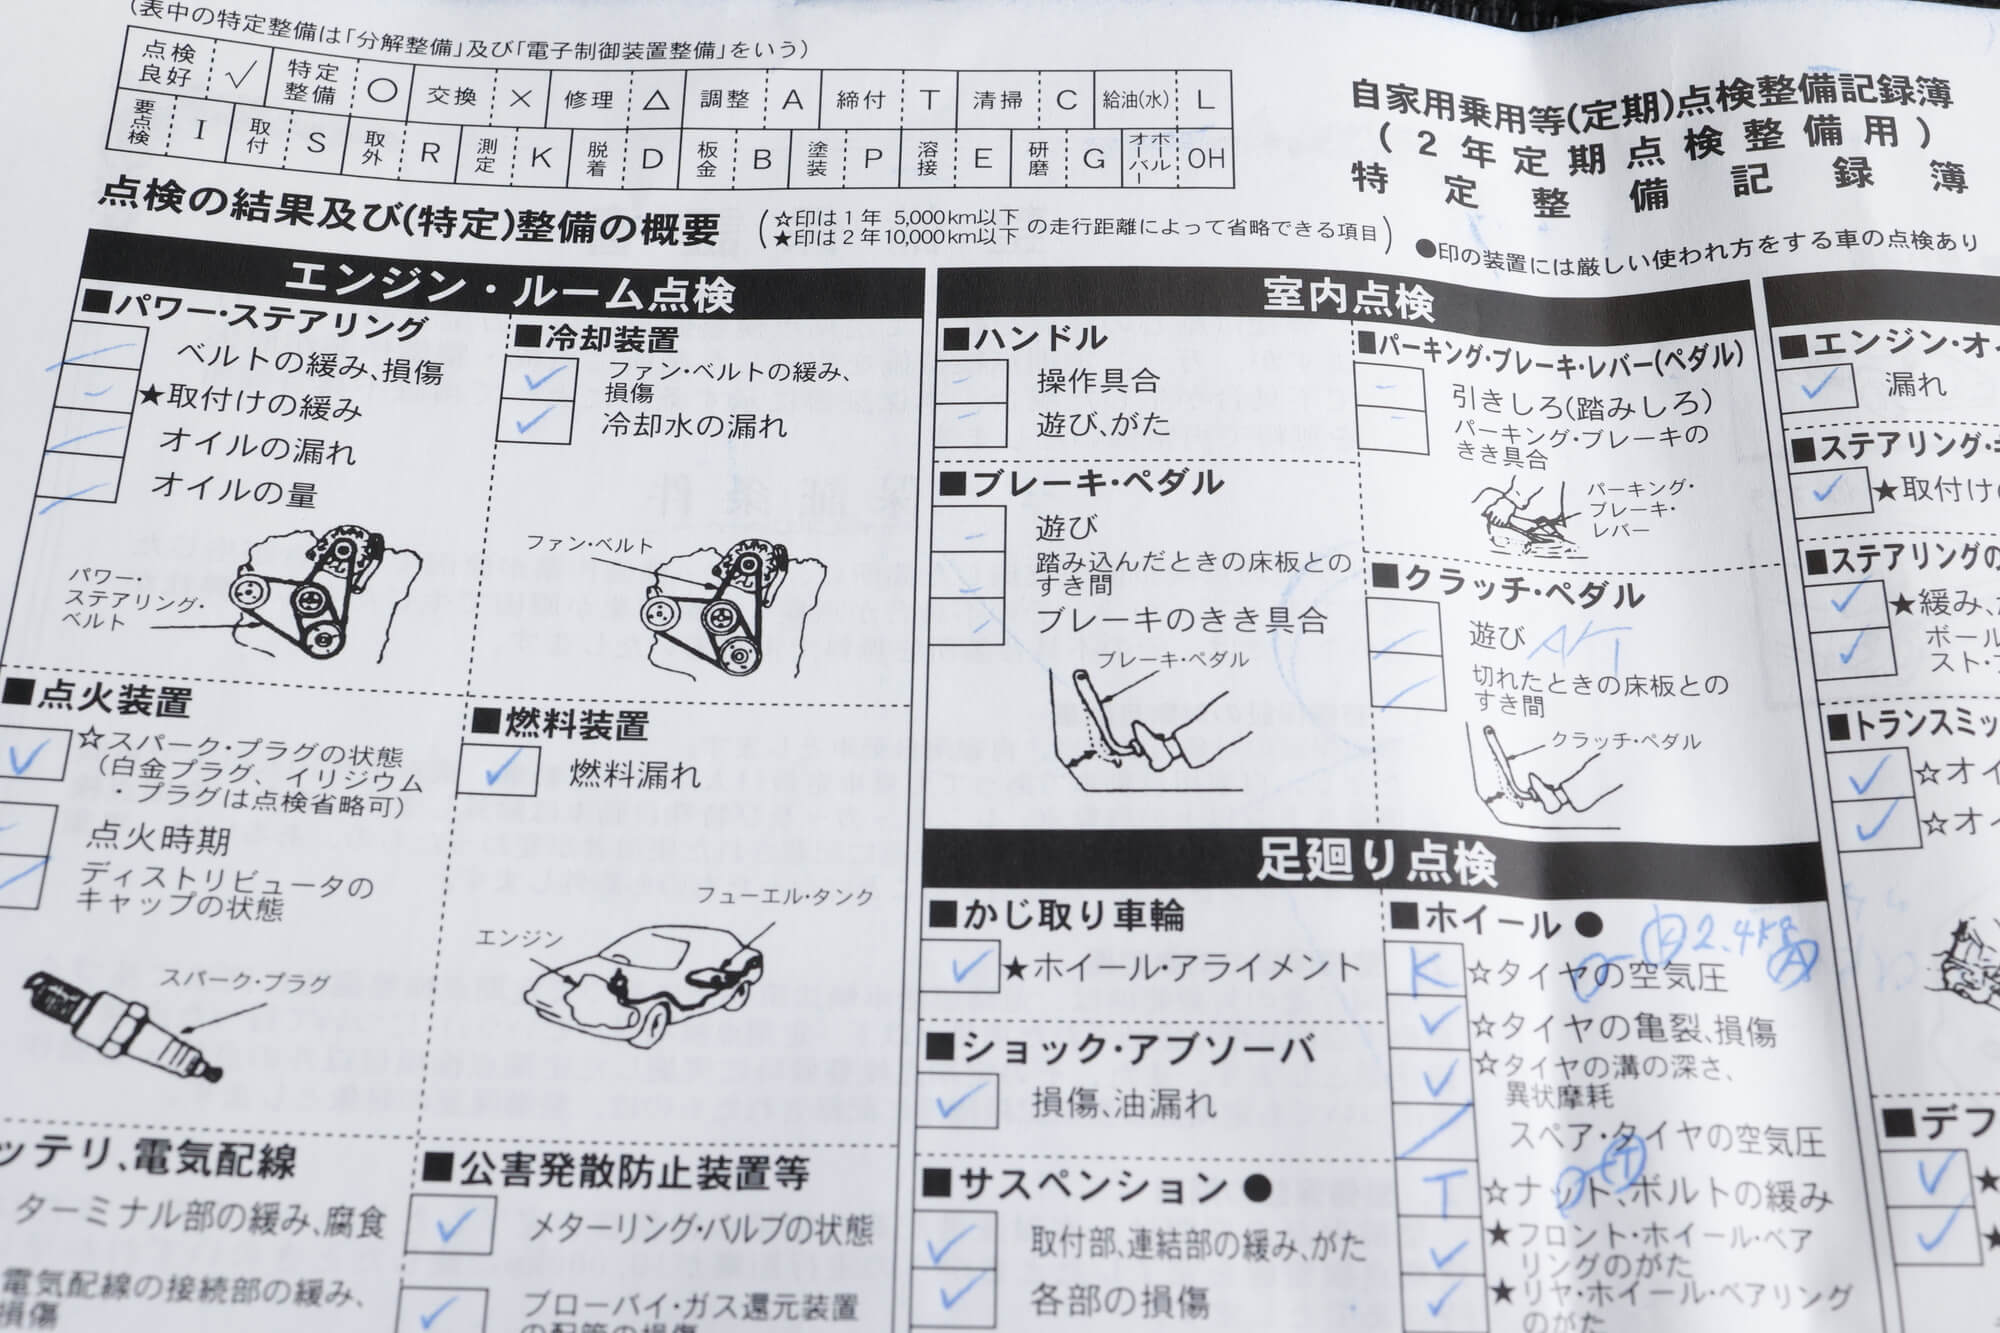 (表中の特定整備は「分解整備」及び「電子制御装置整備」をいう)
点検良好 √ 特定整備 ○ 交換 × 修理 △ 調整 A 締付 T 清掃 C 給油(水) L
要点検 I 取付 S 取外 R 測定 K 脱着 D 板金 B 塗装 P 溶接 E 研磨 G オーバーホール OH
自家用乗用等(定期)点検整備記録簿
(2年定期点検整備用)
特定整備記録簿
点検の結果及び(特定)整備の概要
(☆印は1年 5,000km以下
★印は2年10,000km以下 の走行距離によって省略できる項目)
●印の装置には厳しい使われ方をする車の点検あり
エンジン・ルーム点検
■パワー・ステアリング
ベルトの緩み、損傷
★取付けの緩み
オイルの漏れ
オイルの量
パワー・
ステアリング・
ベルト
■冷却装置
ファン・ベルトの緩み、
損傷
冷却水の漏れ
ファン・ベルト
■点火装置
☆スパーク・プラグの状態
(白金プラグ、イリジウム
・プラグは点検省略可)
点火時期
ディストリビュータの
キャップの状態
スパーク・プラグ
■燃料装置
燃料漏れ
フューエル・タンク
エンジン
ッテリ、電気配線
ターミナル部の緩み、腐食
電気配線の接続部の緩み、
損傷
■公害発散防止装置等
メターリング・バルブの状態
ブローバイ・ガス還元装置
の配管の損傷
室内点検
■ハンドル
操作具合
遊び、がた
■ブレーキ・ペダル
遊び
踏み込んだときの床板との
すき間
ブレーキのきき具合
ブレーキ・ペダル
■パーキング・ブレーキ・レバー(ペダル)
引きしろ(踏みしろ)
パーキング・ブレーキの
きき具合
パーキング・
ブレーキ・
レバー
■クラッチ・ペダル
遊び A/T
切れたときの床板との
すき間
クラッチ・ペダル
足廻り点検
■かじ取り車輪
★ホイール・アライメント
■ショック・アブソーバ
損傷、油漏れ
■サスペンション●
取付部、連結部の緩み、がた
各部の損傷
■ホイール●
2.4kg
K ☆タイヤの空気圧
☆タイヤの亀裂、損傷
☆タイヤの溝の深さ、
異状摩耗
スペア・タイヤの空気圧
T ☆ナット、ボルトの緩み
★フロント・ホイール・ベア
リングのがた
★リヤ・ホイール・ベアリング
のがた
■エンジン・オイ
漏れ
■ステアリング・ギ
★取付けの
■ステアリングの
★緩み、が
ボール
スト・ブ
■トランスミッ
☆オイ
☆オイ
■デフ
★
★